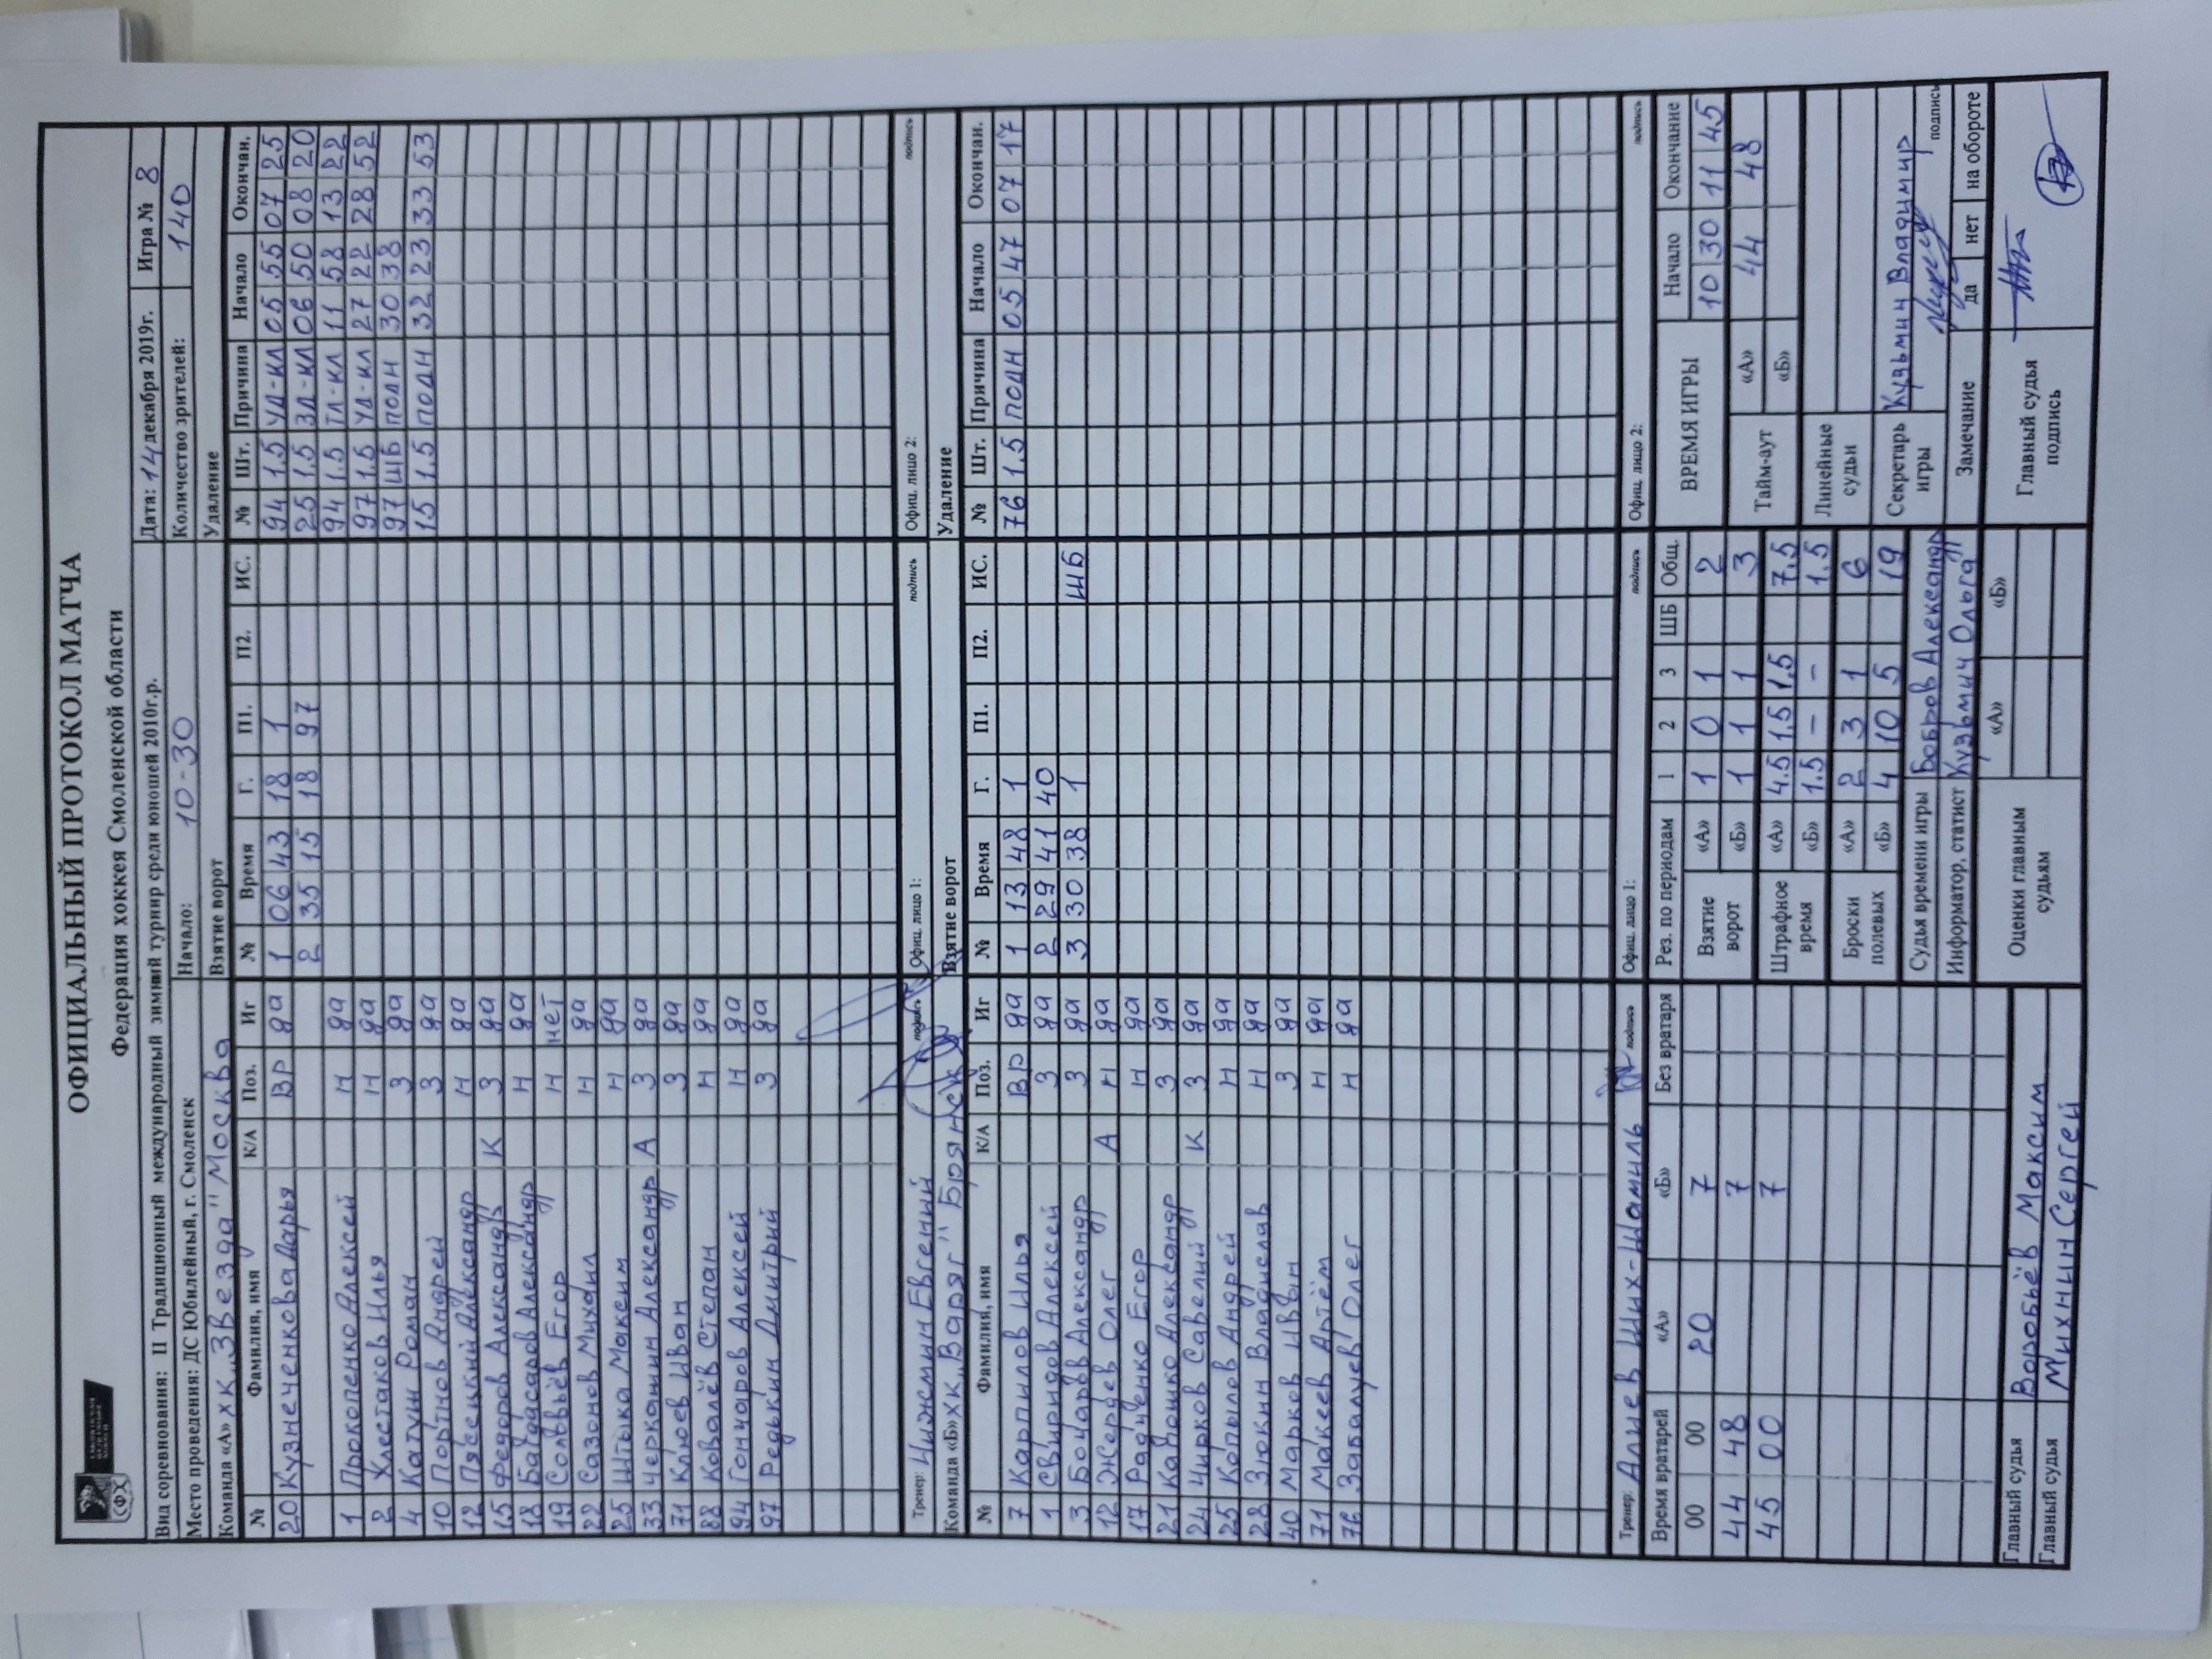 ОФИЦИАЛЬНЫЙ ПРОТОКОЛ МАТЧА
Федерация хоккея Смоленской области
Вид соревнования: II Традиционный международный зимний турнир среди юношей 2010г.р. Дата: 14 декабря 2019г. Игра № 8
Место проведения: ДС Юбилейный, г. Смоленск Начало: 10-30 Количество зрителей: 140
Команда «А» ХК „Звезда" Москва Взятие ворот Удаление
№ Фамилия, имя К/А Поз. Иг № Время Г. П1. П2. ИС. № Шт. Причина Начало Окончан.
20 Кузнеченкова Дарья ВР да 1 06 43 18 1 94 1.5 УД-КЛ 05 55 07 25
2 35 15 18 97 25 1.5 ЗД-КЛ 06 50 08 20
1 Прокопенко Алексей Н да 94 1.5 ТЛ-КЛ 11 58 13 22
2 Хлестаков Илья Н да 97 1.5 УД-КЛ 27 22 28 52
4 Катун Роман З да 97 ШБ ПОДН 30 38
10 Портнов Андрей З да 15 1.5 ПОДН 32 23 33 53
12 Пясецкий Александр Н да
15 Федоров Александр К З да
18 Багдасаров Александр Н да
19 Соловьёв Егор Н нет
22 Сазонов Михаил Н да
25 Штыка Максим Н да
33 Черкашин Александр А З да
71 Клюев Иван З да
88 Ковалёв Степан Н да
94 Гончаров Алексей Н да
97 Редькин Дмитрий З да
Тренер: Чижмин Евгений подпись Офиц. лицо 1: подпись Офиц. лицо 2: подпись
Команда «Б» ХК „Варяг" Брянск Взятие ворот Удаление
№ Фамилия, имя К/А Поз. Иг № Время Г. П1. П2. ИС. № Шт. Причина Начало Окончан.
7 Карпилов Илья ВР да 1 13 48 1 76 1.5 ПОДН 05 47 07 17
1 Свиридов Алексей З да 2 29 41 40
3 Бочаров Александр З да 3 30 38 1 ШБ
12 Жердев Олег А Н да
17 Радченко Егор Н да
21 Капошко Александр З да
24 Чирков Савелий К З да
25 Копылов Андрей Н да
28 Зюкин Владислав Н да
40 Марков Иван З да
71 Макеев Артём Н да
76 Забалуев Олег Н да
Тренер: Алиев Ших-Шамиль подпись Офиц. лицо 1: подпись Офиц. лицо 2: подпись
Время вратарей «А» «Б» Без вратаря Рез. по периодам 1 2 3 ШБ Общ. ВРЕМЯ ИГРЫ Начало Окончание
00 00 20 7 Взятие ворот «А» 1 0 1 2 10 30 11 45
44 48 7 «Б» 1 1 1 3 Тайм-аут «А» 44 48
45 00 7 Штрафное время «А» 4.5 1.5 1.5 7.5 «Б»
«Б» 1.5 - - 1.5 Линейные судьи
Броски полевых «А» 2 3 1 6
«Б» 4 10 5 19 Секретарь игры Кузьмин Владимир
Судья времени игры Бобров Александр подпись
Информатор, статист Кузьмич Ольга Замечание да нет на обороте
Оценки главным судьям «А» «Б» Главный судья подпись
Главный судья Воробьёв Максим
Главный судья Михнин Сергей